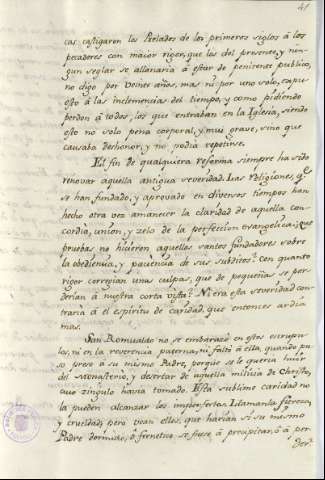 41
cas castigaron los Prelados de los primeros siglos á los
pecadores con maior rigor, que los del presente, y nin-
gun seglar se allanaria á estar de penitente publico,
no digo por veinte años, mas ni por uno solo, expu-
esto á las inclemencias del tiempo, y como pidiendo
perdon á todos, los que entraban en la Iglesia, siendo
esto no solo pena corporal, y muy grave, sino que
causaba deshonor, y no podia repetirse.
El fin de qualquiera reforma siempre ha sido
renovar aquella antigua severidad. Las religiones, q.e
se han fundado, y aprovado en diversos tiempos han
hecho otra vez amanecer la claridad de aquella con-
cordia, union, y zelo de la perfeccion evangelica: que
pruebas no hicieron aquellos santos fundadores sobre
la obediencia, y paciencia de sus subditos? Con quanto
rigor corregian unas culpas, que de pequeñas se per-
derian á nuestra corta vista? Ni era esta severidad con-
traria á el espiritu de caridad, que entonces ardia
mas.
San Romualdo no se embarazó en estos escrupu-
los, ni en la reverencia paterna, ni faltó á ella, quando pu-
so preso á su mismo Padre, porque se le queria huir
del monasterio, y desertar de aquella milicia de Christo,
cuio zingulo havia tomado. Esta sublime caridad no
la pueden alcanzar los imperfectos. Llamanla fiereza,
y crueldad; pero vean ellos, que harian si su mismo
Padre dormido, ó frenetico se fuese á precipitar, ó á per-
der